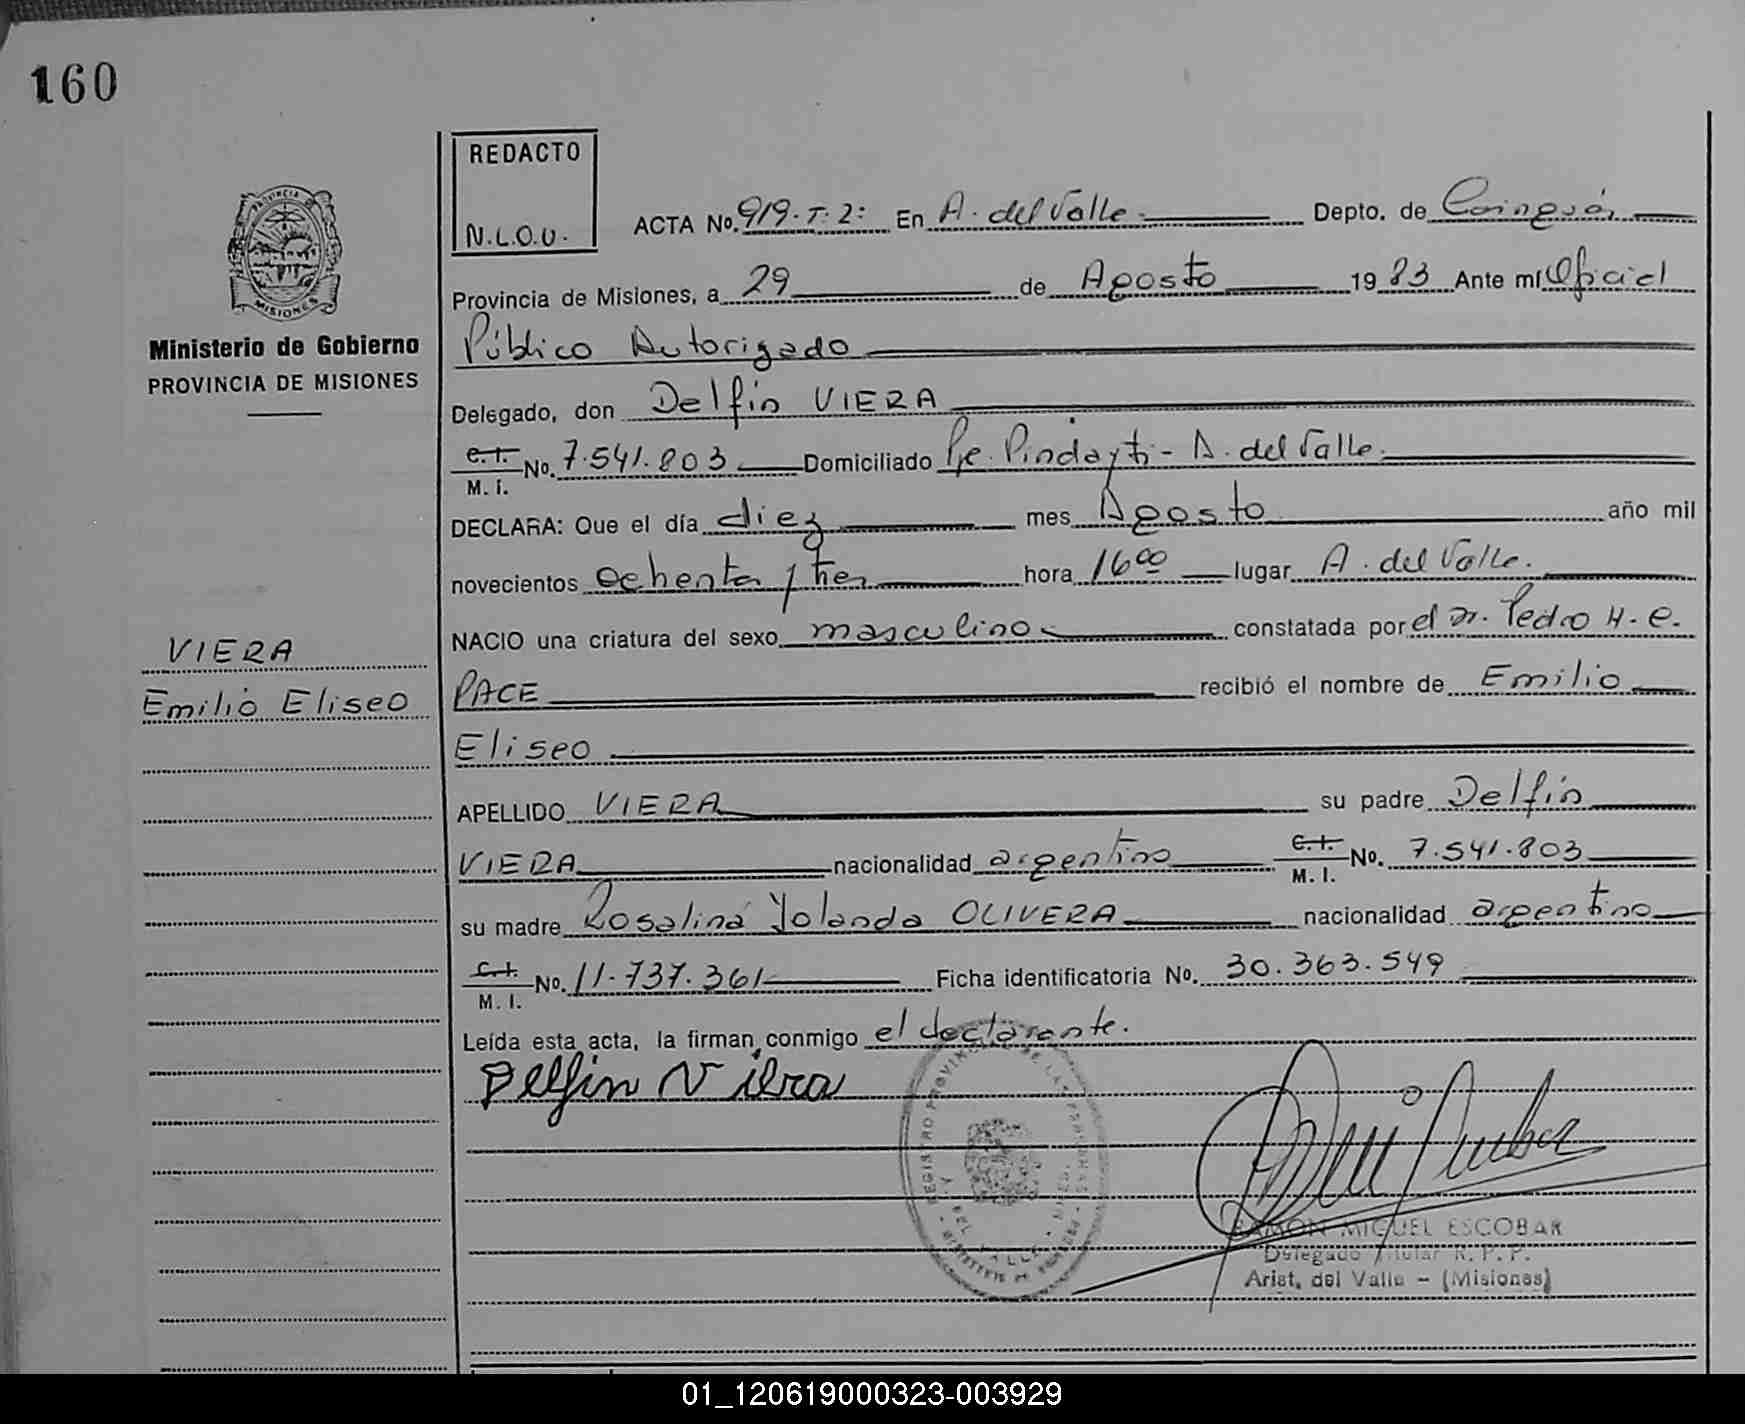 160
REDACTO
N.L.O.U.
PROVINCIA DE
MISIONES
Ministerio de Gobierno
PROVINCIA DE MISIONES
ACTA No. 919. T: 2: En A. del Valle. Depto. de Cainguás
Provincia de Misiones, a 29 de Agosto 1983 Ante mí Oficial
Público Autorizado
Delegado, don Delfin VIERA
C.I. M.I. No. 7.541.803 Domiciliado Pje. Pindayti - A. del Valle.
DECLARA: Que el día diez mes Agosto año mil
novecientos ochenta y tres hora 16 00 lugar A. del Valle.
NACIO una criatura del sexo masculino constatada por el Dr. Pedro H. C.
VIERA
Emilio Eliseo
PACE recibió el nombre de Emilio
Eliseo
APELLIDO VIERA su padre Delfin
VIERA nacionalidad argentino C.I. M.I. No. 7.541.803
su madre Rosalina Yolanda OLIVERA nacionalidad argentino
C.I. M.I. No. 11.737.361 Ficha identificatoria No. 30.363.549
Leída esta acta, la firman conmigo el declarante.
Delfin Viera
REGISTRO PROVINCIAL DE LAS PERSONAS
DEL VALLE
RAMON MIGUEL ESCOBAR
Delegado Titular R. P. P.
Arist. del Valle - (Misiones)
01_120619000323-003929